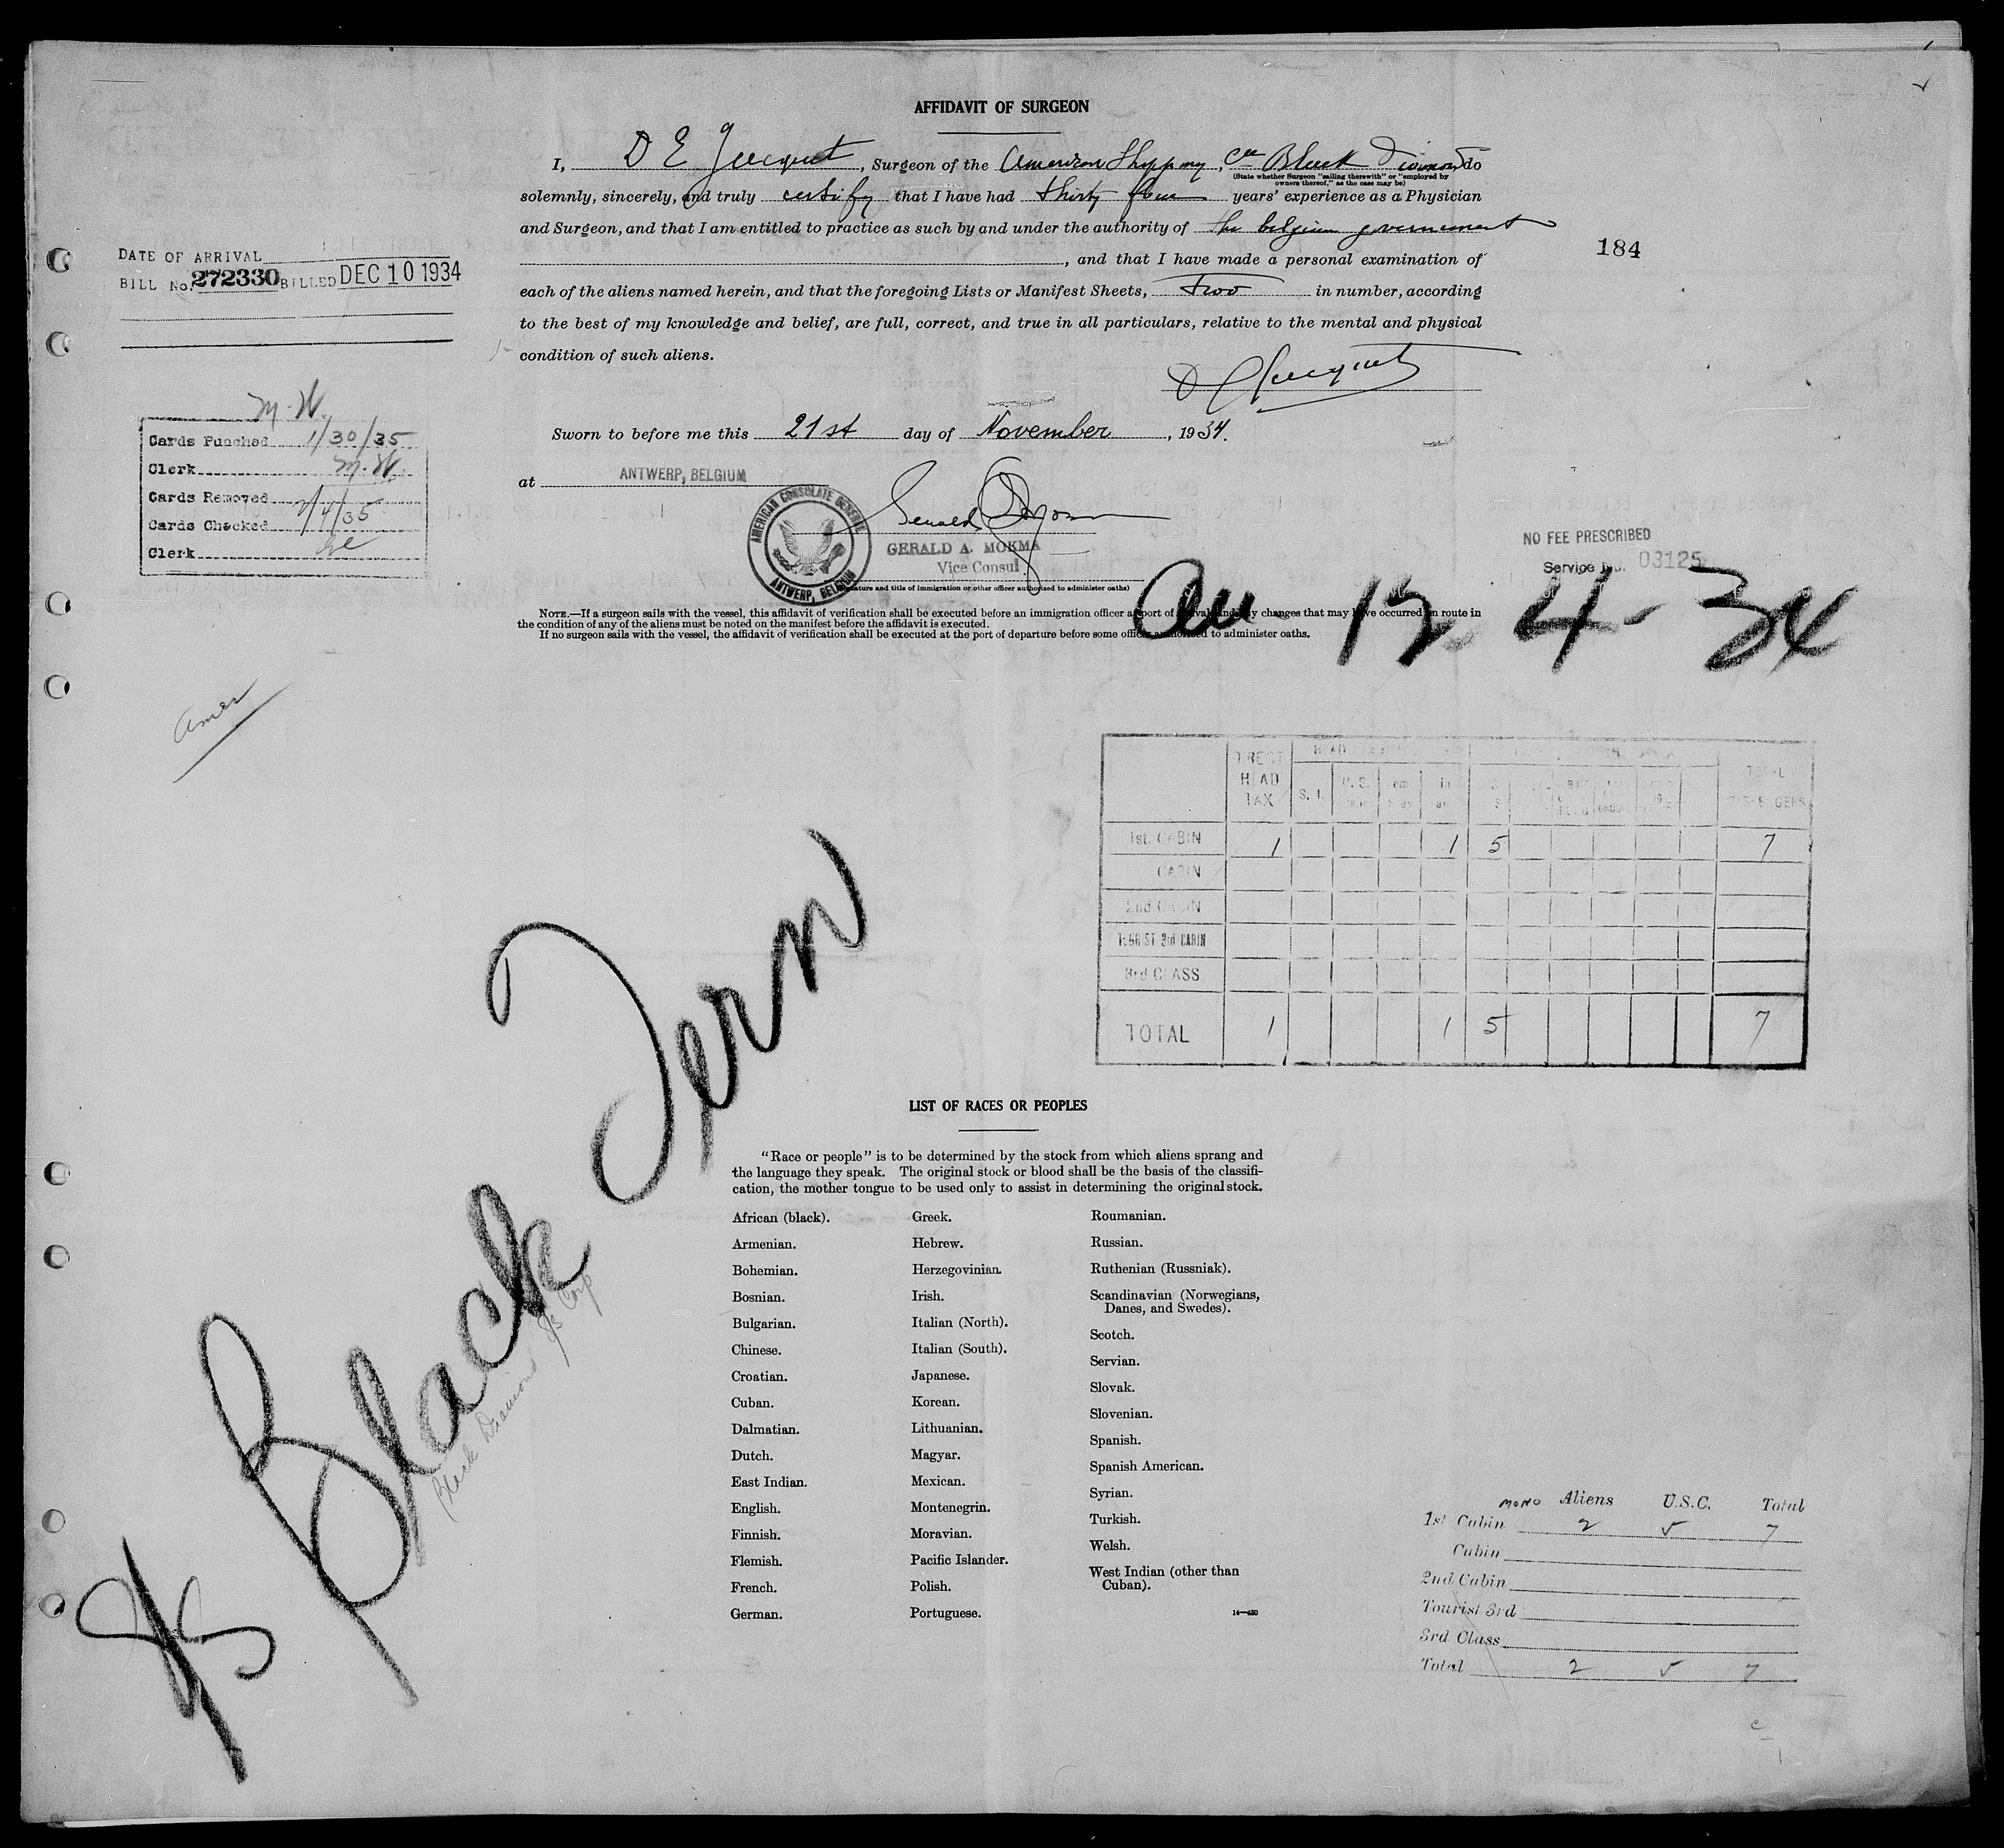 AFFIDAVIT OF SURGEON
I, D E, Surgeon of the American Shipping Co Black Diamond do
(State whether Surgeon "sailing therewith" or "employed by
owners thereof," as the case may be)
solemnly, sincerely, and truly certify that I have had thirty four years' experience as a Physician
and Surgeon, and that I am entitled to practice as such by and under the authority of the belgian government
, and that I have made a personal examination of
each of the aliens named herein, and that the foregoing Lists or Manifest Sheets, two in number, according
to the best of my knowledge and belief, are full, correct, and true in all particulars, relative to the mental and physical
condition of such aliens.
Sworn to before me this 21st day of November, 1934.
at ANTWERP, BELGIUM
AMERICAN CONSULATE GENERAL
ANTWERP, BELGIUM
GERALD A. MOKMA
Vice Consul
and title of immigration or other officer authorized to administer oaths)
NOTE.—If a surgeon sails with the vessel, this affidavit of verification shall be executed before an immigration officer at port of arrival, and any changes that may have occurred en route in
the condition of any of the aliens must be noted on the manifest before the affidavit is executed.
If no surgeon sails with the vessel, the affidavit of verification shall be executed at the port of departure before some officer authorized to administer oaths.
DATE OF ARRIVAL
BILL No. 272330 BILLED DEC 10 1934
M.W.
Cards Punched 1/30/35
Clerk M.W.
Cards Removed
Cards Checked 2/4/35
Clerk
184
NO FEE PRESCRIBED
Service No. 03125
12-4-34
Amer
DIRECT HEAD TAX S. I. TOTAL PASSENGERS
1st. CABIN 1 1 5 7
CABIN
2nd CABIN
TOURIST 3rd CABIN
3rd CLASS
TOTAL 1 1 5 7
S/S Black Tern
Black Diamond S/S Corp
LIST OF RACES OR PEOPLES
"Race or people" is to be determined by the stock from which aliens sprang and
the language they speak. The original stock or blood shall be the basis of the classifi-
cation, the mother tongue to be used only to assist in determining the original stock.
African (black).
Armenian.
Bohemian.
Bosnian.
Bulgarian.
Chinese.
Croatian.
Cuban.
Dalmatian.
Dutch.
East Indian.
English.
Finnish.
Flemish.
French.
German.
Greek.
Hebrew.
Herzegovinian.
Irish.
Italian (North).
Italian (South).
Japanese.
Korean.
Lithuanian.
Magyar.
Mexican.
Montenegrin.
Moravian.
Pacific Islander.
Polish.
Portuguese.
Roumanian.
Russian.
Ruthenian (Russniak).
Scandinavian (Norwegians,
Danes, and Swedes).
Scotch.
Servian.
Slovak.
Slovenian.
Spanish.
Spanish American.
Syrian.
Turkish.
Welsh.
West Indian (other than
Cuban).
14—430
MONO Aliens U.S.C. Total
1st Cabin 2 5 7
Cabin
2nd Cabin
Tourist 3rd
3rd Class
Total 2 5 7